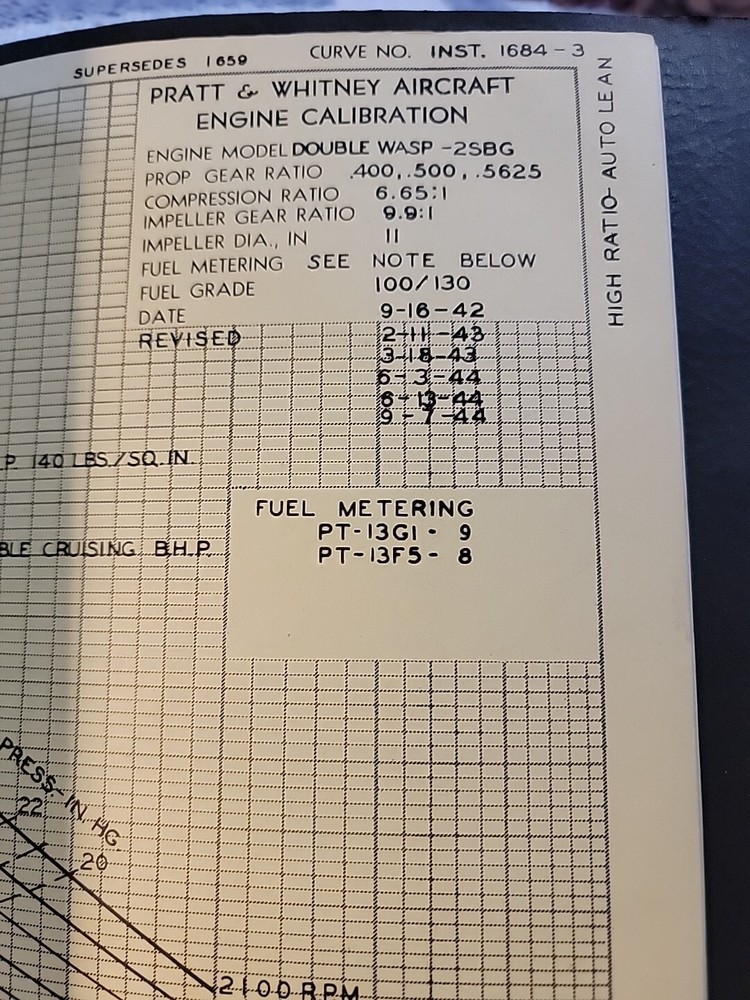 SUPERSEDES 1659
CURVE NO. INST. 1684-3
PRATT & WHITNEY AIRCRAFT
ENGINE CALIBRATION
ENGINE MODEL DOUBLE WASP -2SBG
PROP GEAR RATIO .400,.500,.5625
COMPRESSION RATIO 6.65:1
IMPELLER GEAR RATIO 9.9:1
IMPELLER DIA., IN 11
FUEL METERING SEE NOTE BELOW
FUEL GRADE 100/130
DATE 9-16-42
REVISED 2-11-43
3-18-43
6-3-44
6-13-44
9-7-44
HIGH RATIO-AUTO LEAN
P. 140 LBS./SQ.IN.
FUEL METERING
PT-13G1-9
PT-13F5-8
BLE CRUISING B.H.P.
PRESS-IN. HG
22
20
2100 RPM